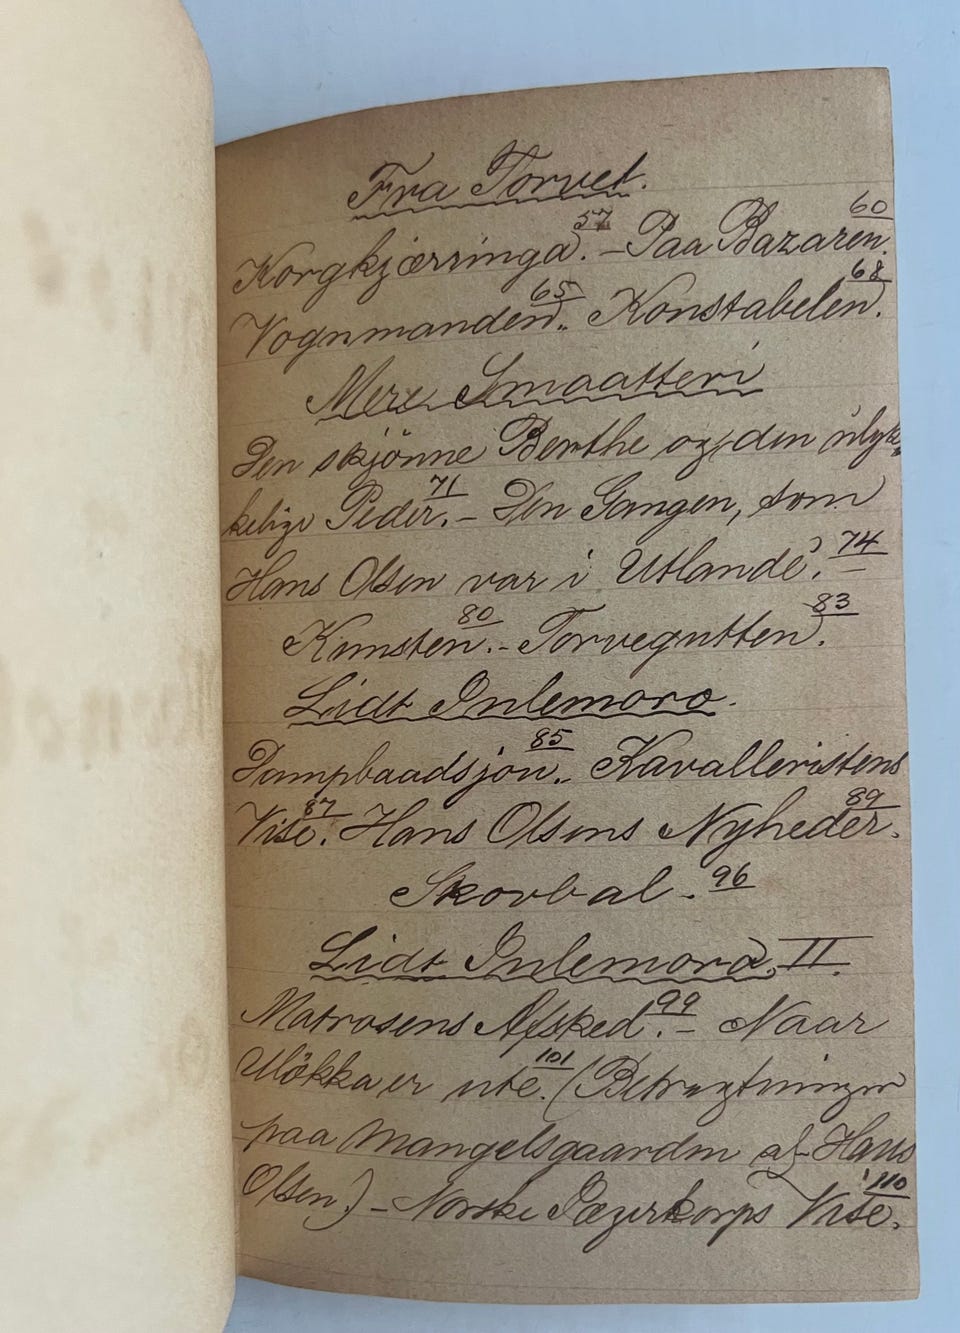 Fra Torvet.
57 60
Korgkjærringa. – Paa Bazaren.
65 68
Vognmanden. Konstabelen.
Mere Smaatteri
Den skjönne Berthe og den ulyk-
71
kelige Peder. – Den Gangen, som
74
Hans Olsen var i Utlande.
80 83
Kunsten. – Torvegutten.
Lidt Inlemoro.
85
Dampbaadsjon. Kavalleristens
87 89
Vise. Hans Olsens Nyheder.
Skovbal. 96
Lidt Inlemoro. II.
99
Matrosens Afsked. – Naar
101
Ulökka er ute. (Betragtninger
paa Mangelsgaarden af Hans
110
Olsen.) – Norske Jægerkorps Vise.